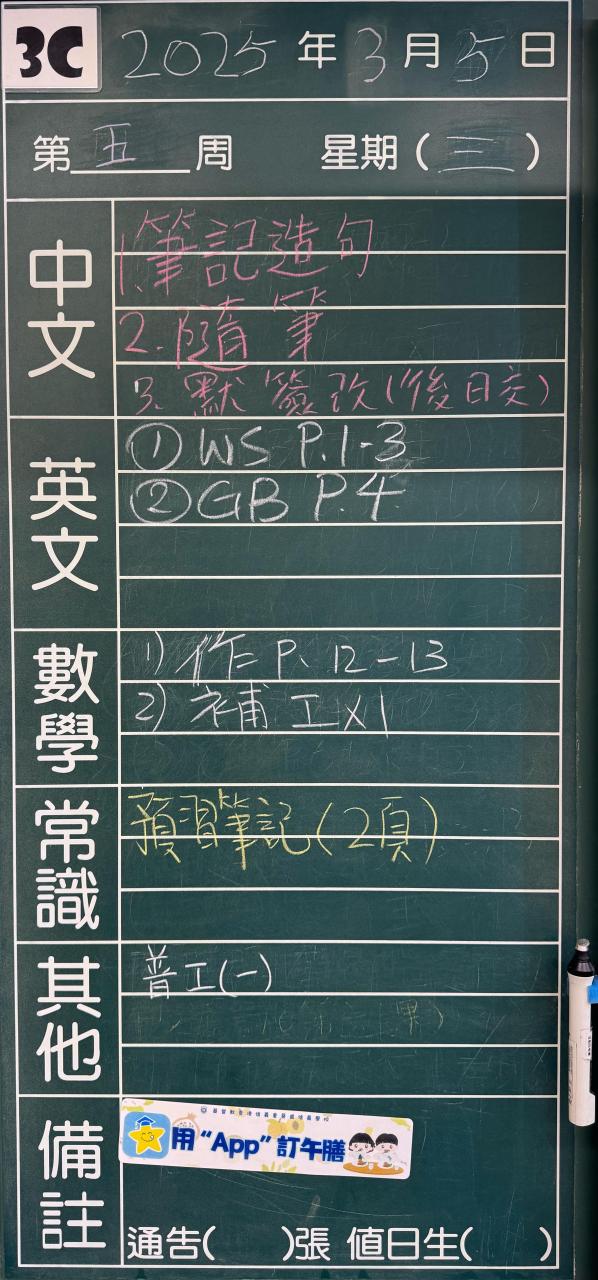 3C 2025 年 3 月 5 日
第 五 周 星期 ( 三 )
中文
1.筆記造句
2.隨筆
3.默簽改(後日交)
英文
① WS P.1-3
② GB P.4
數學
1) 作 P. 12-13
2) 補工x1
常識
預習筆記(2頁)
其他
普工(一)
備註
用“App”訂午膳
通告( )張 值日生( )